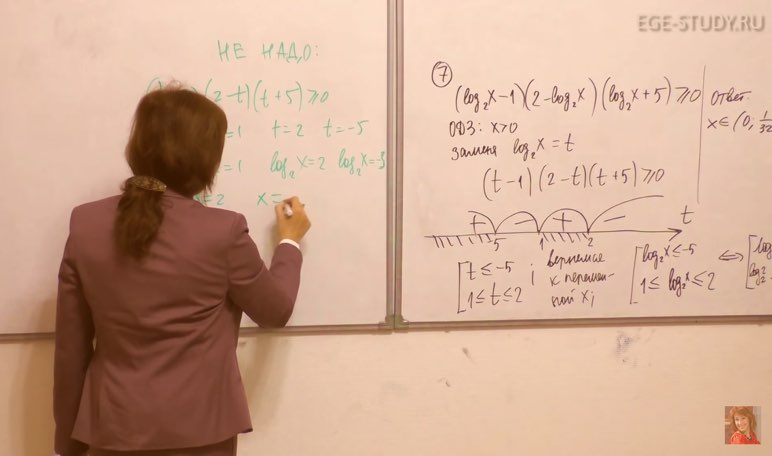 EGE-STUDY.RU
НЕ НАДО:
(2-t)(t+5)≥0
=1 t=2 t=-5
=1 log₂x=2 log₂x=-5
=2 x=
7
(log₂x-1)(2-log₂x)(log₂x+5)≥0
ОДЗ: x>0
замена log₂x=t
(t-1)(2-t)(t+5)≥0
+ - + - t
-5 1 2
[t≤-5
1≤t≤2
; вернемся
к перемен-
ной x;
[log₂x≤-5
1≤log₂x≤2
⇔
[log
log₂
Ответ:
x∈(0; 1/32